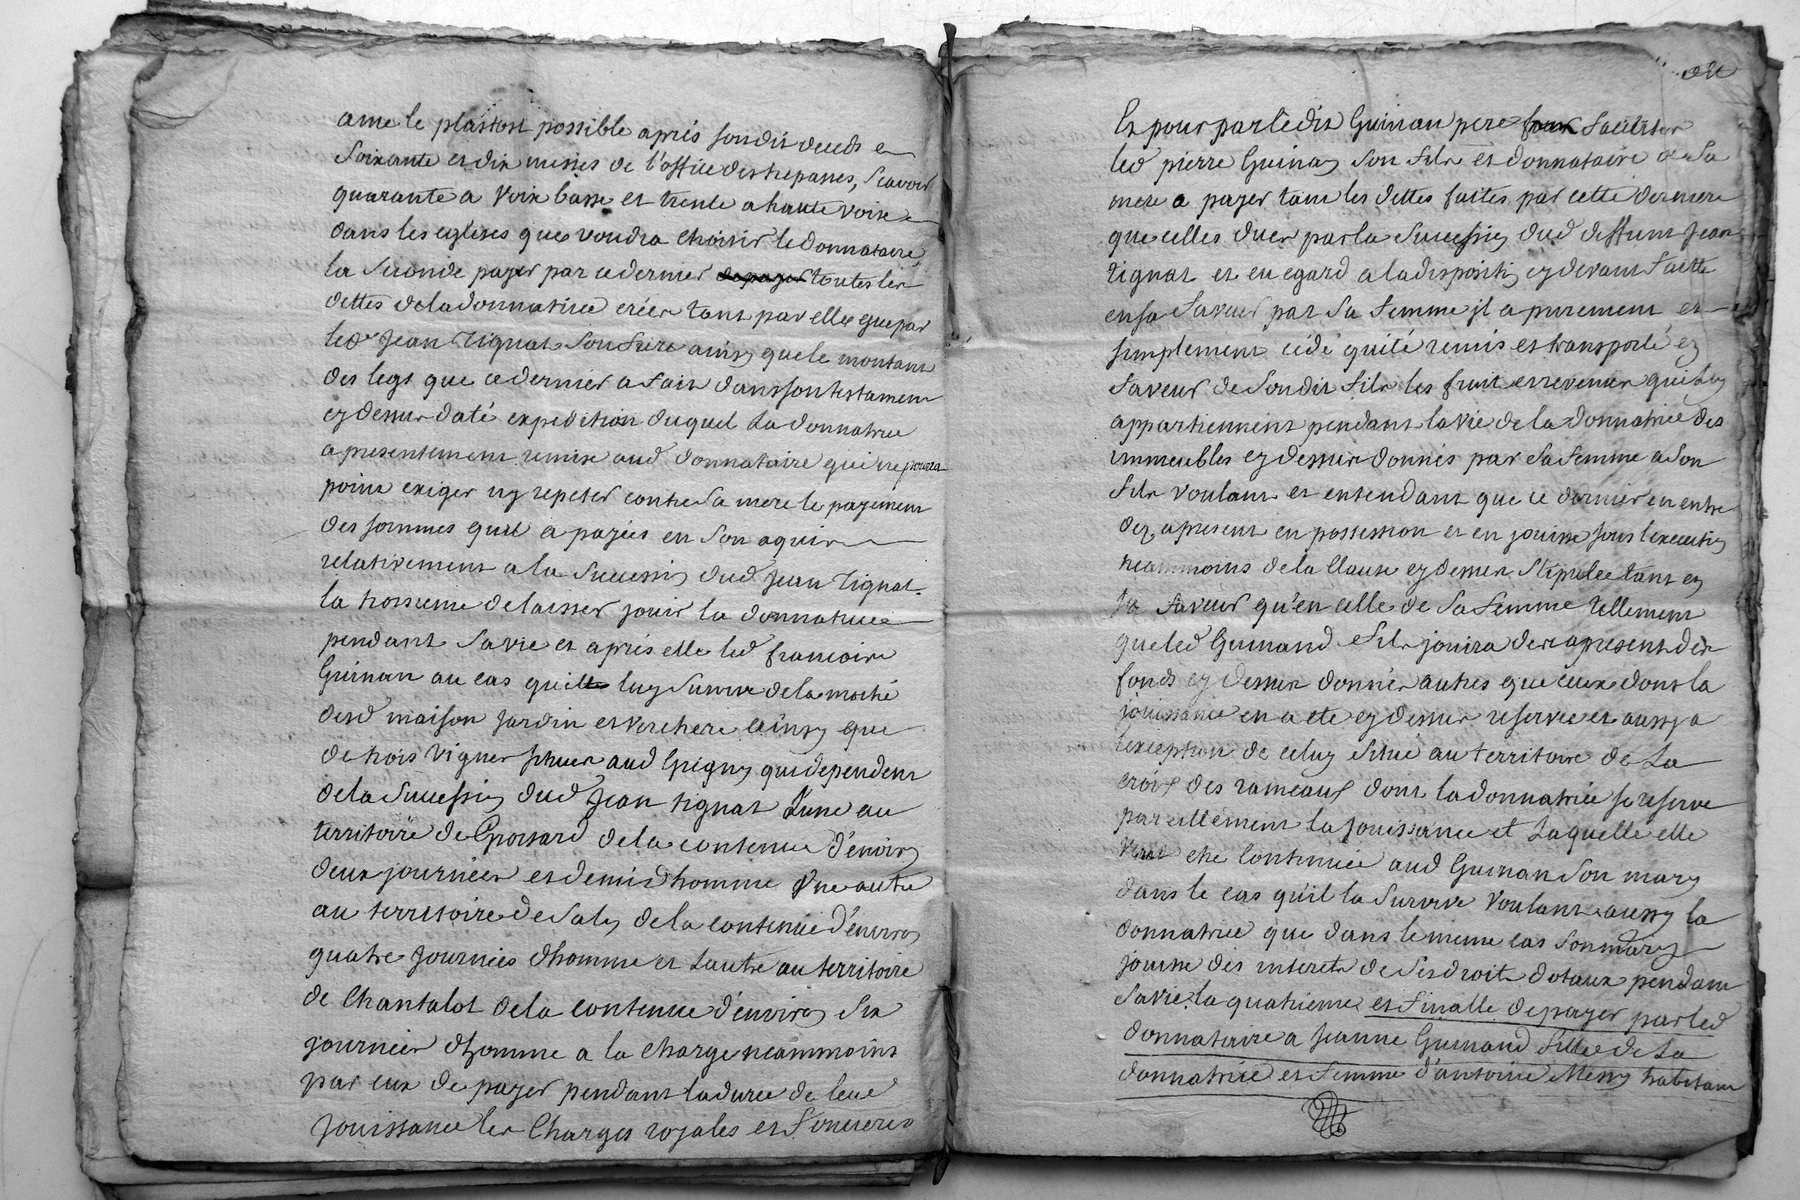 ame le plastost possible aprés sondit deceds
Soixante et dix messes de l'office des trepasses, Scavoir
quarante a voix basse et trente a haute voix
dans les eglises que voudra choisir le donnataire,
la Seconde payer par ce dernier de payer toutes les
dettes de la donnatrice créés tant par elle que par
led Jean Tignat Son frere ainsy que le montant
des legs que ce dernier a fait dans son testament
cy dessus daté expedition duquel La donnatrice
a presentement remise aud donnataire qui ne pourra
point exiger ny repeter contre Sa mere le payement
des sommes quil a payées en Son aquit
relativement a la Succession dud Jean Tignat.
la troisieme de laisser jouir la donnatrice
pendant Sa vie et aprés elle led francois
Guinan au cas quil luy Survive de la moitié
desd maison Jardin et verchere ainsy que
de trois vignes situees aud Grigny qui dependent
de la Succession dud Jean tignat L'une au
territoire de Gporsard de la contenue d'environ
deux journées et demis d'homme Une autre
au territoire de Saly de la contenue d'environ
quatre Journées d'homme et L'autre au territoire
de Chantalot de la contenue d'environ Six
journées d'homme a la charge neammoins
par eux de payer pendant la durée de leur
Jouissance les Charges royales et foncieres
Et pour par ledit Guinan pere faciliter
led pierre Guinan Son fils et donnataire de Sa
mere a payer tant les dettes faites par cette derniere
que celles dues par la Succession dud deffunt Jean
tignat et eu egard a la disposition cy devant faitte
en sa faveur par Sa femme il a purement et
simplement cédé quité remis et transporté en
faveur de Sondit fils les fruit et revenus qui luy
appartiennent pendant la vie de la donnatrice des
immeubles cy dessus donnés par Sa femme a Son
fils voulant et entendant que ce dernier en entre
dez a present en possession et en jouisse sous l'execution
neammoins de la Clause cy dessus Stipulée tant en
Sa faveur qu'en celle de Sa femme tellement
que led Guinand fils jouira des apresent des
fonds cy dessus donnés autres que ceux dont la
jouissance en a eté cy dessus reservée et aussy a
l'exception de celuy situé au territoire de La
croix des rameaux dont la donnatrice se reserve
pareillement la jouissance et Laquelle elle
veut etre continuée aud Guinan Son mary
dans le cas qu'il la Survive Voulant aussy la
donnatrice que dans le meme cas Son mary
jouisse des interets de Ses droits dotaux pendant
Sa vie. la quatrieme et finalle de payer par led
donnataire a Jeanne Guinand fille de La
donnatrice et femme d'antoine Messy habitant